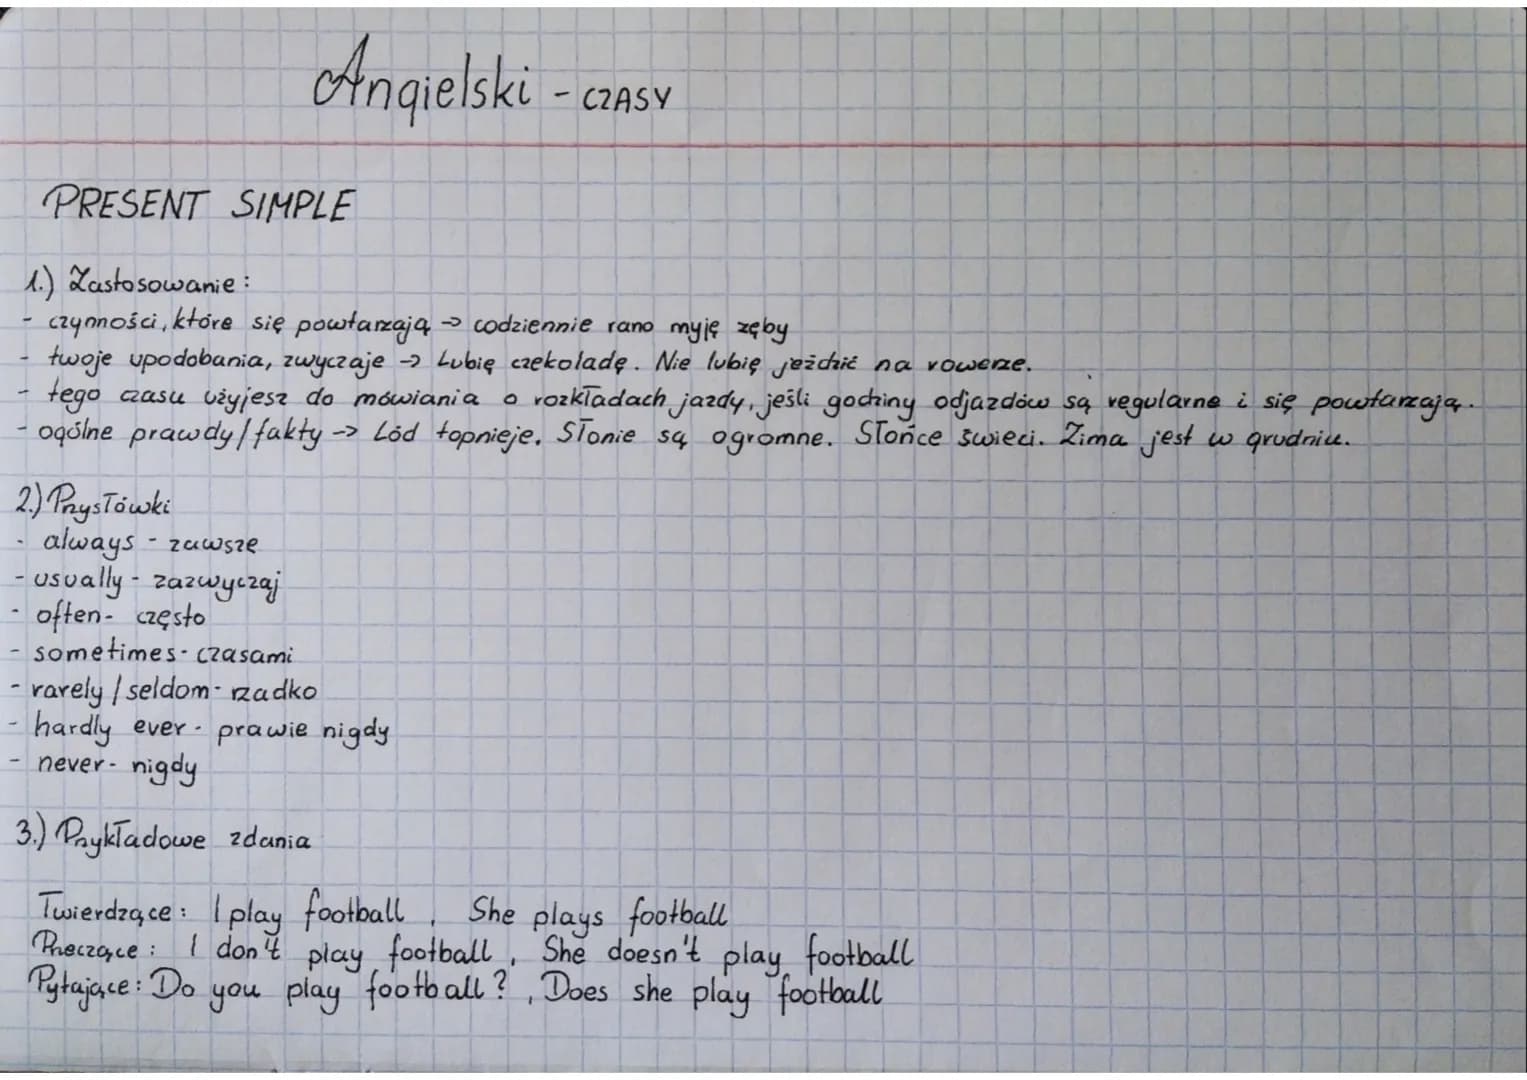 Angielski - CZASY
PRESENT SIMPLE
1.) Zastosowanie:
- czynności, które się powtarzają → codziennie rano myję zęby
- twoje upodobania, zwyczaje → Lubię czekoladę. Nie lubię jeździć na rowerze.
- tego czasu użyjesz do mówiania o rozkładach jazdy, jeśli godziny odjazdów są regularne i się powtarzają.
- ogólne prawdy/fakty → Lód topnieje. Słonie są ogromne. Słońce świeci. Zima jest w grudniu.
2.) Przysłówki
- always - zawsze
- usually - zazwyczaj
- often - często
- sometimes - czasami
- rarely / seldom - rzadko
- hardly ever - prawie nigdy
- never - nigdy
3.) Przykładowe zdania
Twierdzące: I play football, She plays football
Przeczące: I don't play football, She doesn't play football
Pytające: Do you play football?, Does she play football